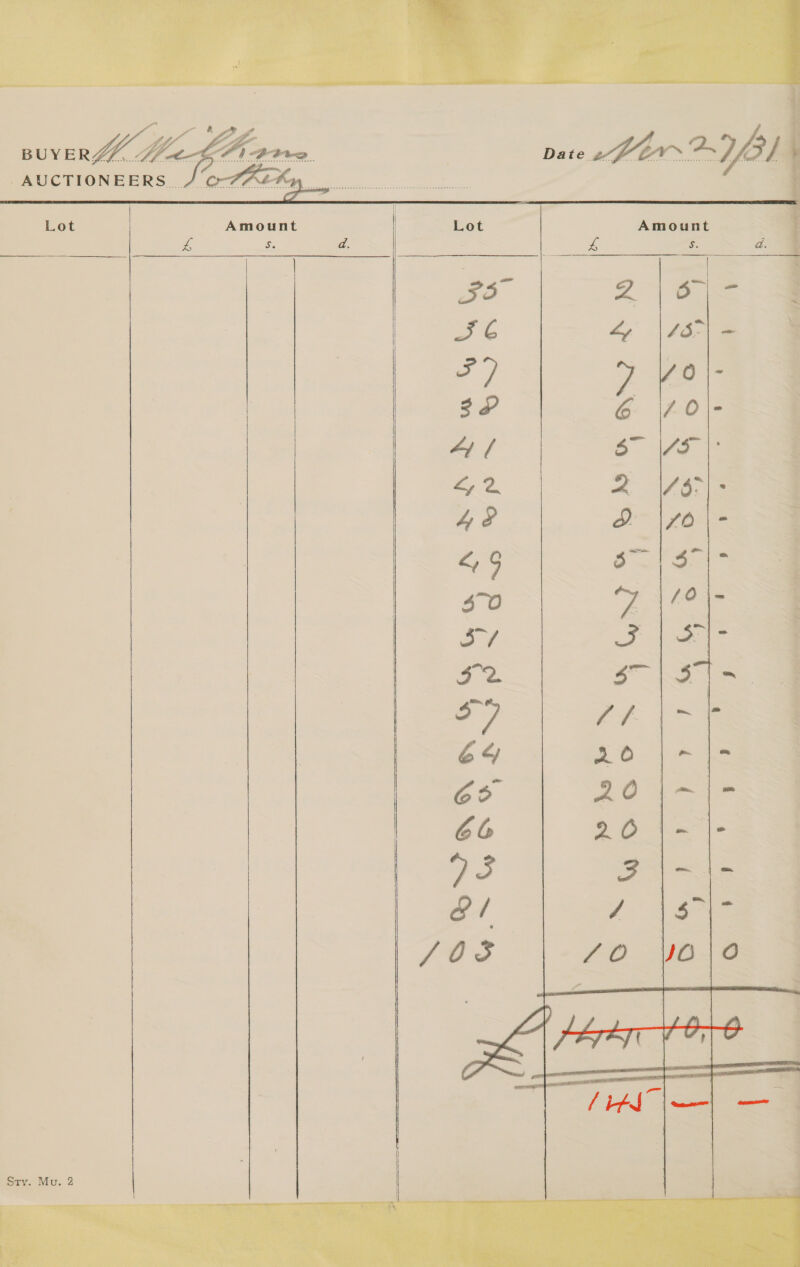 BUYER W.
Date Nov 27/31
AUCTIONEERS Sotheby
Lot Amount Lot Amount
£ s. d. £ s. d.
35 2 5 -
36 4 15 -
37 7 10 -
38 6 10 -
41 5 15 -
42 2 15 -
48 8 10 -
49 5 5 -
50 7 10 -
51 3 5 -
52 5 5 -
57 11 - -
64 20 - -
65 20 - -
66 20 - -
73 3 - -
81 1 5 -
103 10 10 0
£ 144 10, 0
145 — —
Sty. Mu. 2